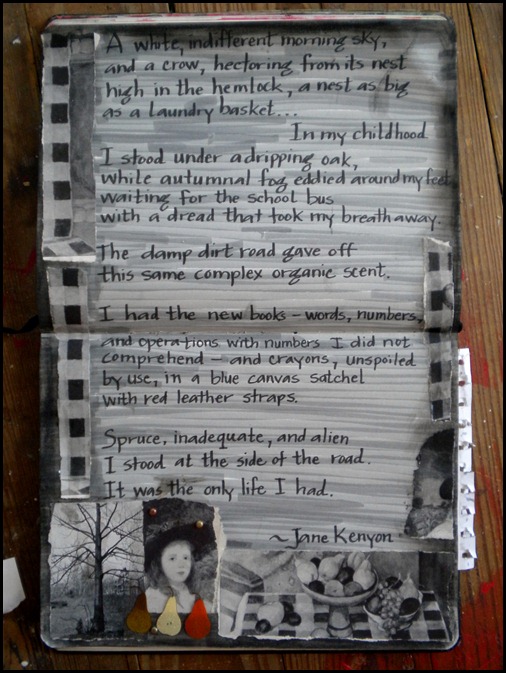 A white, indifferent morning sky,
and a crow, hectoring from its nest
high in the hemlock, a nest as big
as a laundry basket...
In my childhood
I stood under a dripping oak,
while autumnal fog eddied around my feet,
waiting for the school bus
with a dread that took my breath away.
The damp dirt road gave off
this same complex organic scent.
I had the new books - words, numbers,
and operations with numbers I did not
comprehend - and crayons, unspoiled
by use, in a blue canvas satchel
with red leather straps.
Spruce, inadequate, and alien
I stood at the side of the road.
It was the only life I had.
~ Jane Kenyon